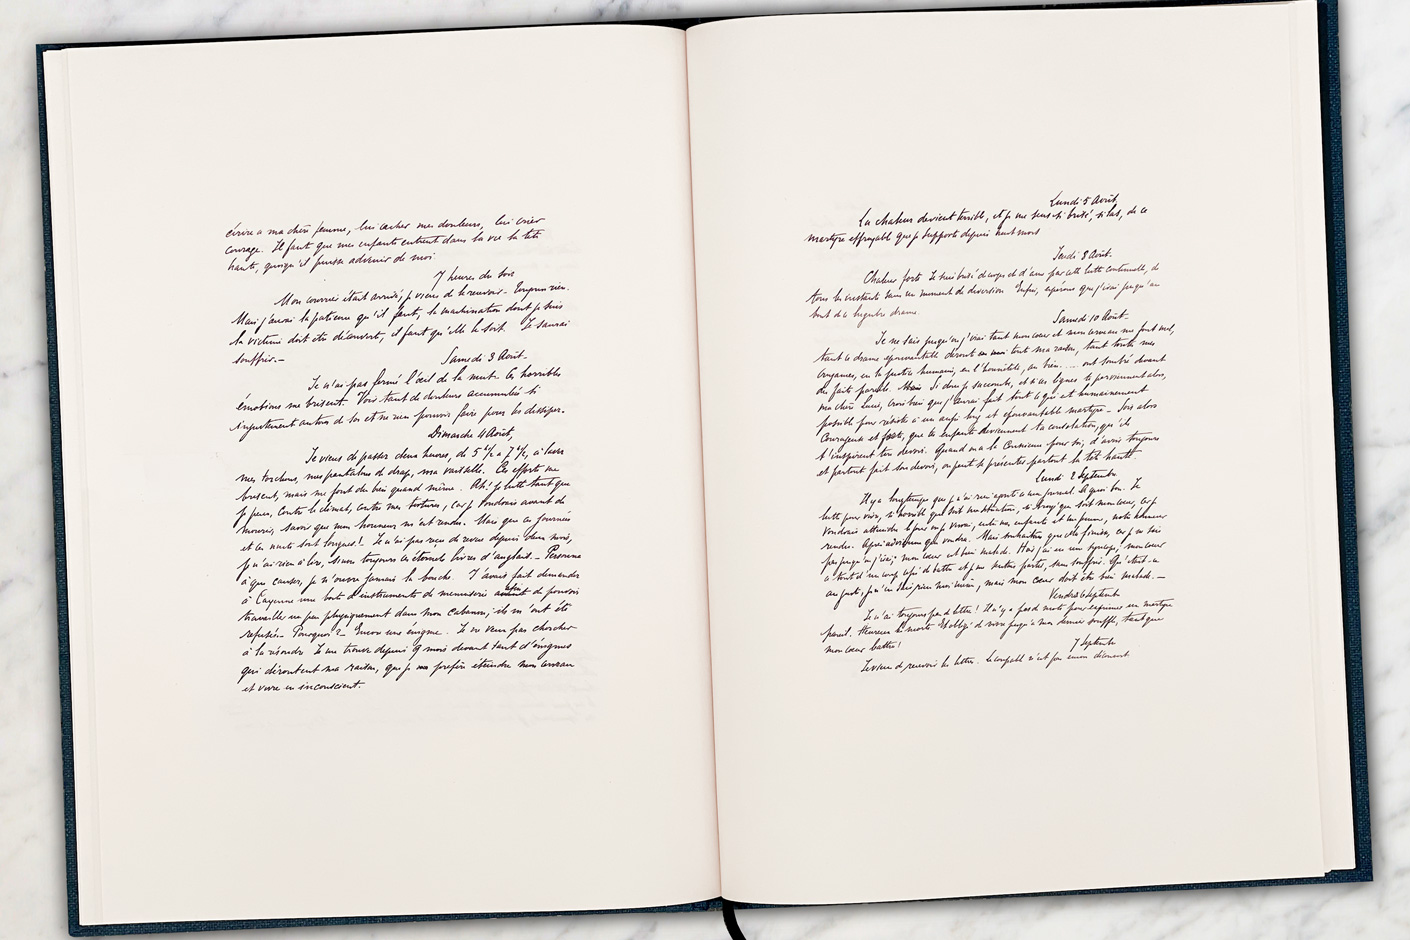 écrire a ma chère femme, lui cacher mes douleurs, lui crier
courage. Il faut que mes enfants entrent dans la vie la tête
haute, quoiqu'il puisse advenir de moi
7 heures du soir
Mon courrier étant arrivé, je viens de le recevoir. Toujours rien.
Mais j'aurai la patience qu'il faut, la machination dont je suis
la victime doit être découverte, il faut qu'elle le soit. Je saurai
souffrir.—
Samedi 3 Août.
Je n'ai pas fermé l'œil de la nuit. Ces horribles
émotions me brisent. Voir tant de douleurs accumulées si
injustement autour de soi et ne rien pouvoir faire pour les dissiper.
Dimanche 4 Août,
Je viens de passer deux heures, de 5 ½ a 7 ½, à laver
mes torchons, mes pantalons de drap, ma vaisselle. Ces efforts me
brisent, mais me font du bien quand même. Ah! je lutte tant que
je peux, contre le climat, contre mes tortures, car je voudrais avant de
mourir, savoir que mon honneur m'est rendu. Mais que ces journées
et ces nuits sont longues!— Je n'ai pas reçu de revues depuis deux mois,
je n'ai rien à lire, sinon toujours les éternels livres d'anglais.— Personne
à que causer, je n'ouvre jamais la bouche. J'avais fait demander
à Cayenne une boite d'instruments de menuiserie afin de pouvoir
travailler un peu physiquement dans mon cabanon; ils m'ont été
refusés.— Pourquoi?— Encore une énigme. Je ne veux pas chercher
à la résoudre. Je me trouve depuis 9 mois devant tant d'énigmes
qui déroutent ma raison, que je préfère éteindre mon cerveau
et vivre en inconscient.
Lundi 5 Août,
La chaleur devient terrible, et je me sens si brisé, si las, de ce
martyre effroyable que je supporte depuis huit mois
Jeudi 8 Août.
Chaleur forte. Je suis brisé de corps et d'âme par cette lutte continuelle, de
tous les instants sans un moment de Enfin, espérons que j'irai jusqu'au
bout de ce lugubre drame.
Samedi 10 Août.
Je ne sais jusqu'où j'irai tant mon cœur et mon cerveau me font mal,
tant ce drame épouvantable déroute tout ma raison, tant toutes mes
croyances, en la justice humaine, en l'honnêteté, au bien.... ont sombré devant
des faits pareils. Si donc je succombe, et si ces lignes te parviennent alors,
ma chère Lucie, crois bien que j'aurai fait tout ce qui est humainement
possible pour résister à un aussi long et épouvantable martyre.— Sois alors
courageuse et forte, que tes enfants deviennent ta consolation, qu'ils
t'inspirent ton devoir. Quand on a la Conscience pour soi, d'avoir toujours
et partout fait son devoir, on peut se présenter partout la tête haute
Lundi 2 Septembre
Il y a longtemps que je n'ai rien ajouté a mon journal. A quoi bon. Je
lutte pour vivre, si horrible que soit ma situation, si broyé que soit mon cœur, car je
voudrais attendre le jour où je verrai, entre mes enfants et ma femme, notre honneur
rendu. Après que voudra. Mais souhaitons que cela finisse, car je ne sais
pas jusqu'où j'irai; mon cœur est bien malade. Hier j'ai eu une syncope, mon cœur
a tout d'un coup cessé de battre et je me sentais partir, sans souffrir. Qu'était-ce
au juste, je n'en sais rien moi-même, mais mon cœur doit être bien malade.—
Vendredi 6 Septembre
Je n'ai toujours pas de lettres! Il n'y a pas de mots pour exprimer un martyre
pareil. Heureux les morts Et obligé de vivre jusqu'à mon dernier souffle, tant que
mon cœur battra!
7 Septembre
Je viens de recevoir les lettres. Le coupable n'est pas encore découvert.